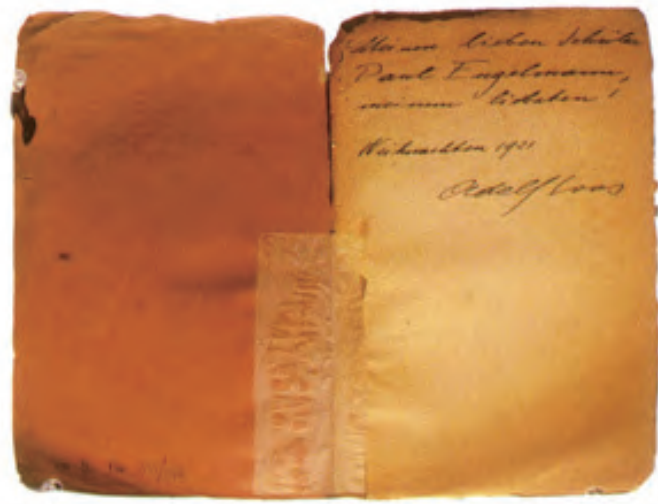 Meinem lieben Schüler
Paul Engelmann,
meinem liebsten!
Weihnachten 1921
Adolf Loos